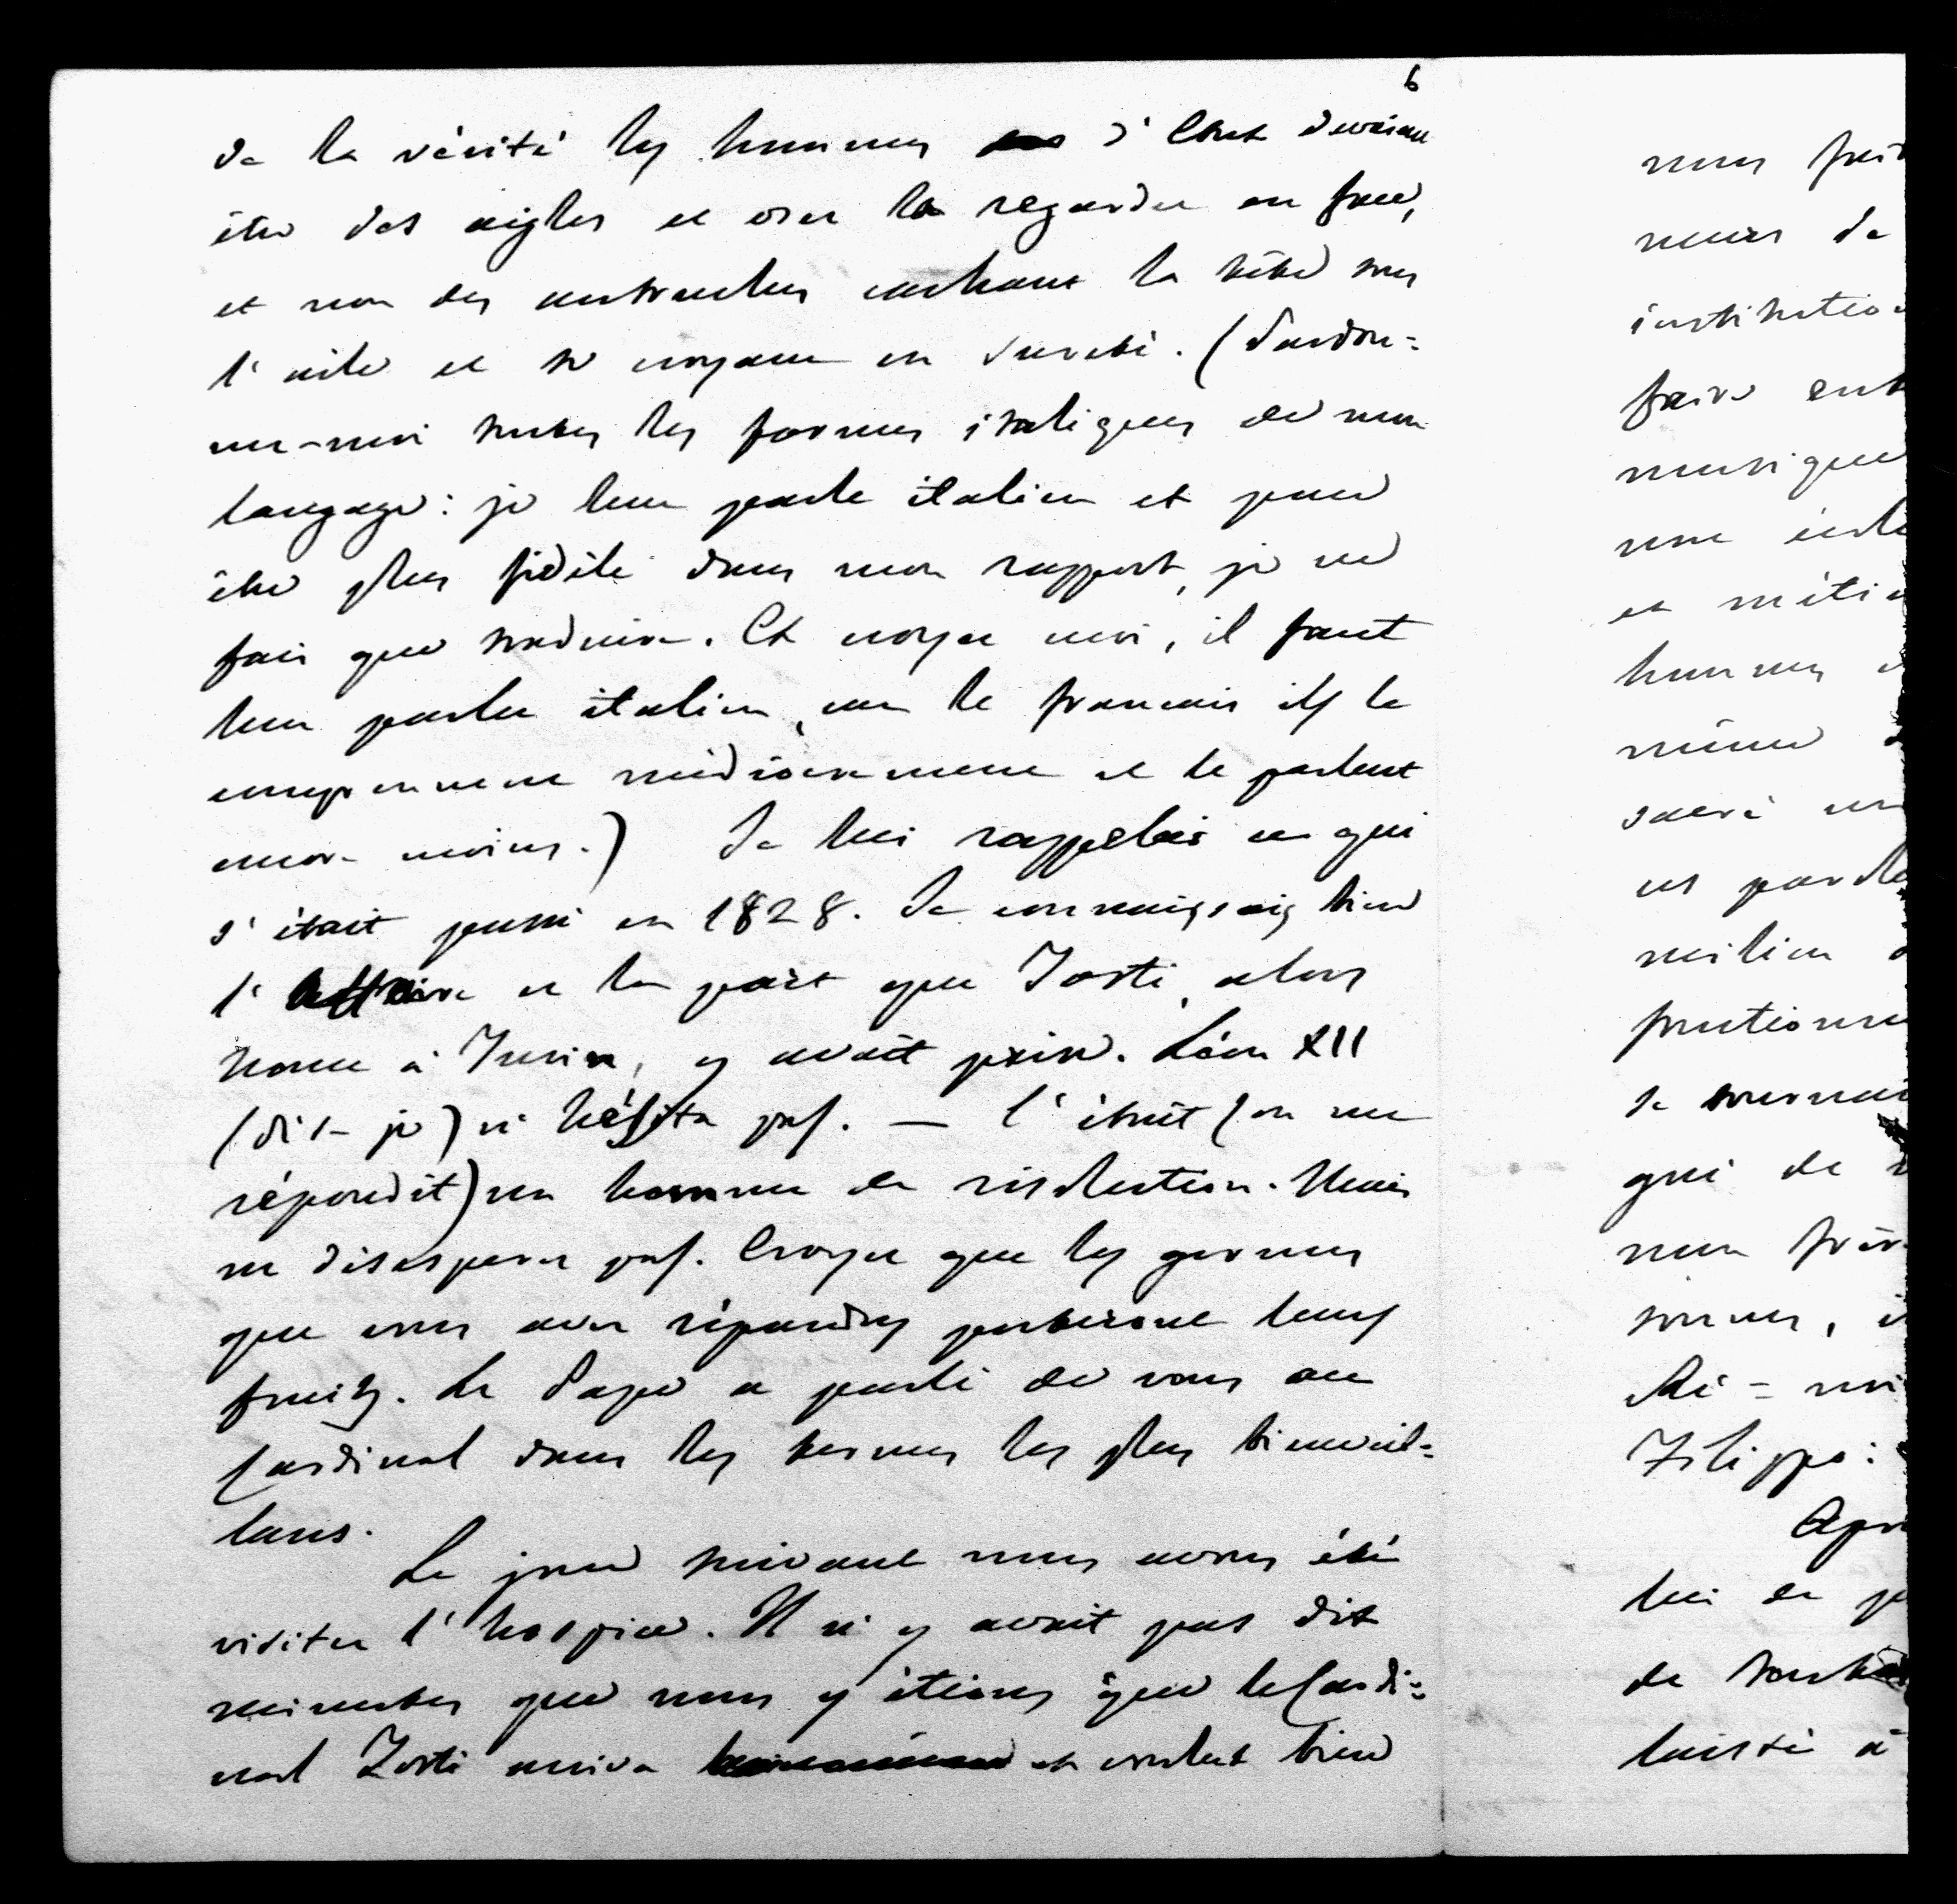 6
de la vérité les hommes d'Etat devraient
être des aigles et oser la regarder en face,
et non des autruches cachant la tête sous
l'aile et se croyant en sureté. (Pardon=
nez-moi toutes les formes italiques de mon
langage: je leur parle italien et pour
être plus fidèle dans mon rapport, je ne
fais que traduire. Et croyez moi, il faut
leur parler italien, car le français ils le
comprennent médiocrement et le parlent
encore moins.) Je lui rappelais ce qui
s'était passé en 1828. Je connaissais bien
l'affaire et la part que Tosti, alors
nonce à Turin, y avait prise. Léon XII
(dis-je) n'hésita pas. — C'était (on me
répondit) un homme de résolution. Mais
ne désespérez pas. Croyez que les germes
que vous avez répandus porteront leurs
fruits. Le Pape a parlé de vous au
Cardinal dans les termes les plus bienveil=
lans.
Le jour suivant nous avons été
visiter l'hospice. Il n'y avait pas dix
minutes que nous y étions que le Cardi=
nal Tosti arriva et voulut bien
nous
de
institution
faire
musique
et
hommes
même
milieu
de
qui de
Filippo:
lui de
de
laissé à